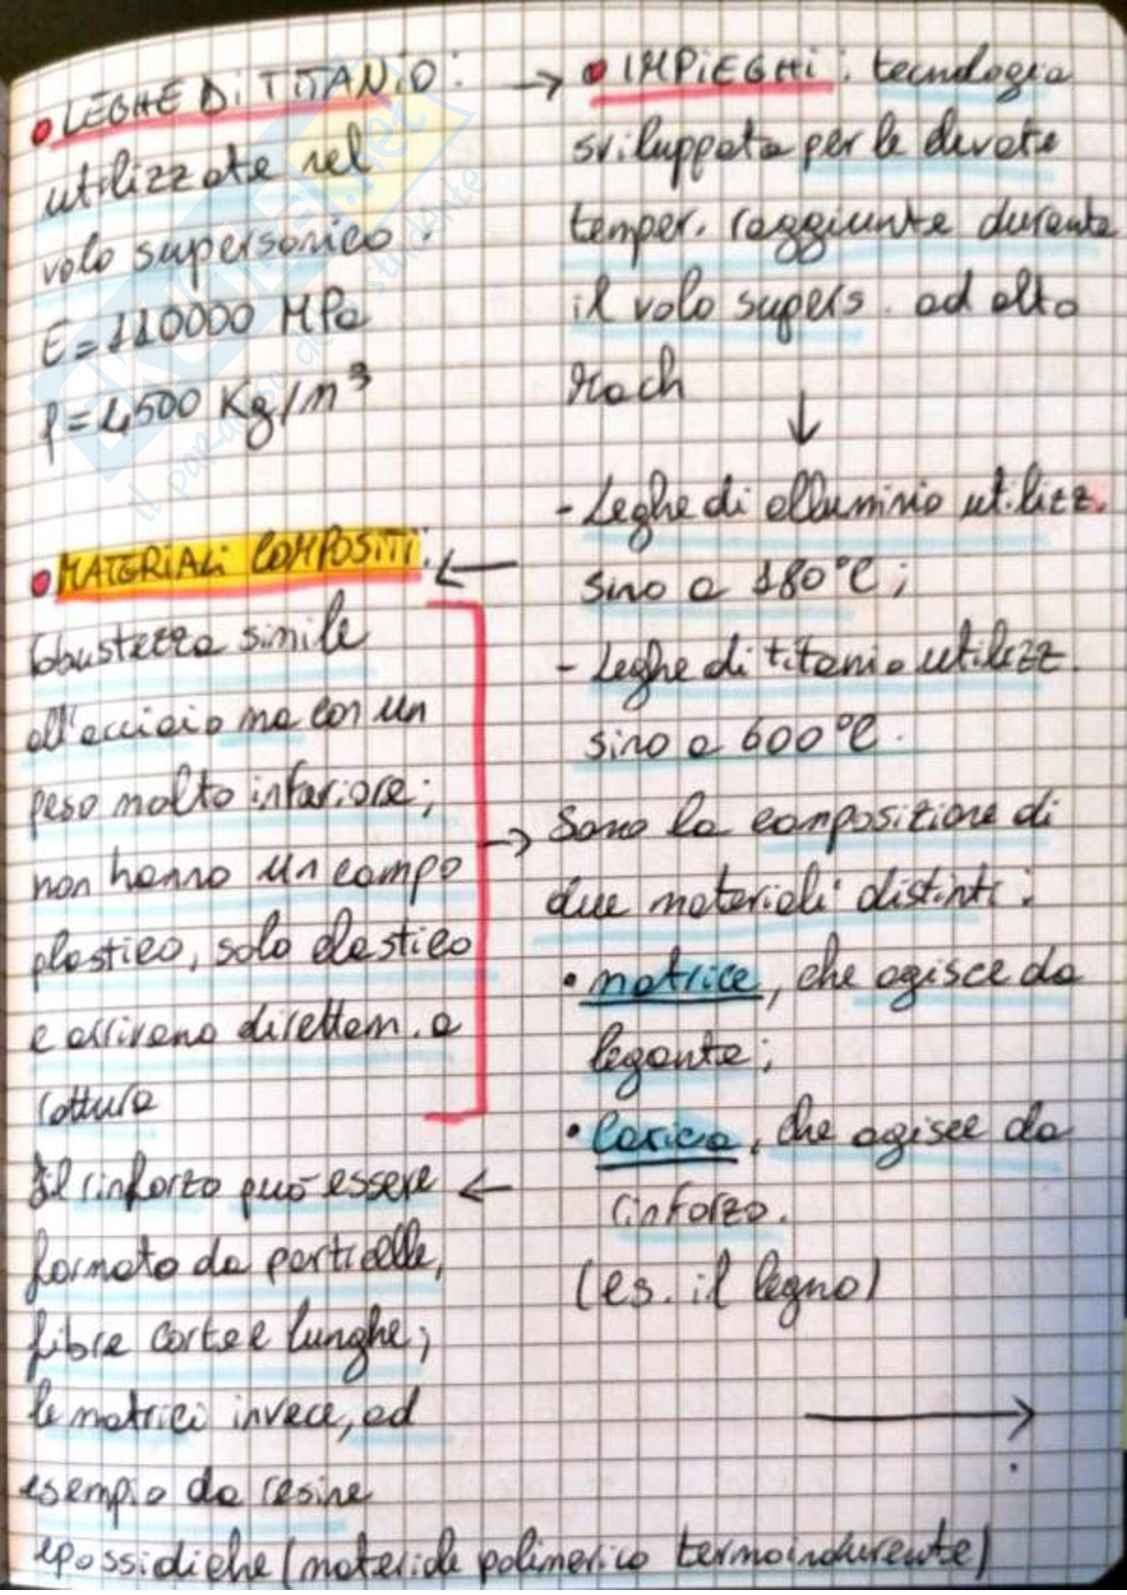 • LEGHE DI TITANIO:
utilizzate nel
volo supersonico.
E = 110000 MPa
ρ = 4500 Kg/m³
→ • IMPIEGHI: tecnologia
sviluppata per le elevate
temper. raggiunte durante
il volo supers. ad alto
Mach
↓
- Leghe di alluminio utilizz.
sino a 180°C;
- Leghe di titanio utilizz.
sino a 600°C.
• MATERIALI COMPOSITI: ←
robustezza simile
all'acciaio ma con un
peso molto inferiore;
non hanno un campo
plastico, solo elastico
e arrivano direttam. a
rottura
→ Sono la composizione di
due materiali distinti:
• matrice, che agisce da
legante;
• carica, che agisce da
rinforzo.
(es. il legno)
Il rinforzo può essere ←
formato da particelle,
fibre corte e lunghe;
le matrici invece, ad
esempio da resine
epossidiche (materiale polimerico termoindurente)
→